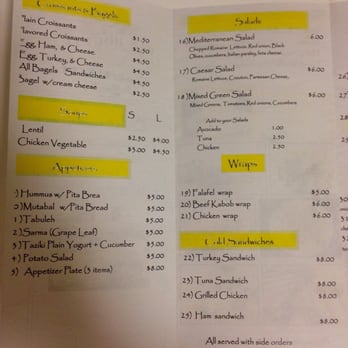 Croissants & Bagels
Plain Croissants
Flavored Croissants $1.50
Egg, Ham, & Cheese $2.50
Egg, Turkey, & Cheese
All Bagels Sandwiches $4.50
Bagel w/cream cheese
$2.50
Soups S L
Lentil $2.50 $4.00
Chicken Vegetable $3.00 $4.50
Appetizers
) Hummus w/ Pita Brea $5.00
) Mutabal w/Pita Bread $5.00
1) Tabuleh $5.00
2) Sarma (Grape Leaf) $5.00
3) Taziki Plain Yogurt + Cucumber $5.00
4) Potato Salad $5.00
5) Appetizer Plate (3 items) $8.00
Salads
16) Mediterranean Salad 6.00
Chopped Romaine Lettuce, Red onion, Black
Olives, cucumbers, Italian parsley, feta cheese,
17) Caesar Salad $6.00
Romaine Lettuce, Crouton, Parmesan Cheese,
18) Mixed Green Salad $6.00
Mixed Greens, Tomatoes, Red onions, Cucumbers
Add to your Salads
Avocado 1.00
Tuna 2.50
Chicken 2.50
Wraps
19) Falafel wrap $5.00
20) Beef Kabob wrap $6.00
21) Chicken wrap $6.00
Cold Sandwiches
22) Turkey Sandwich $8.00
23) Tuna Sandwich $8.00
24) Grilled Chicken $8.00
25) Ham sandwich $8.00
All served with side orders